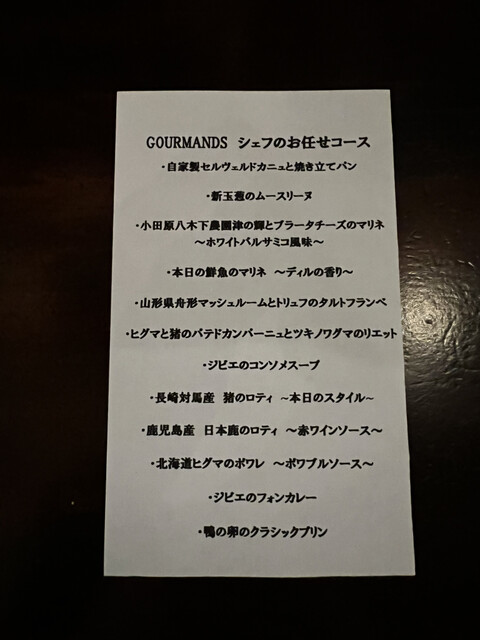 GOURMANDS シェフのお任せコース
・自家製セルヴェルドカニュと焼き立てパン
・新玉葱のムースリーヌ
・小田原八木下農園津の輝とブラータチーズのマリネ
～ホワイトバルサミコ風味～
・本日の鮮魚のマリネ ～ディルの香り～
・山形県舟形マッシュルームとトリュフのタルトフランベ
・ヒグマと猪のパテドカンパーニュとツキノワグマのリエット
・ジビエのコンソメスープ
・長崎対馬産 猪のロティ ～本日のスタイル～
・鹿児島産 日本鹿のロティ ～赤ワインソース～
・北海道ヒグマのポワレ ～ポワブルソース～
・ジビエのフォンカレー
・鴨の卵のクラシックプリン